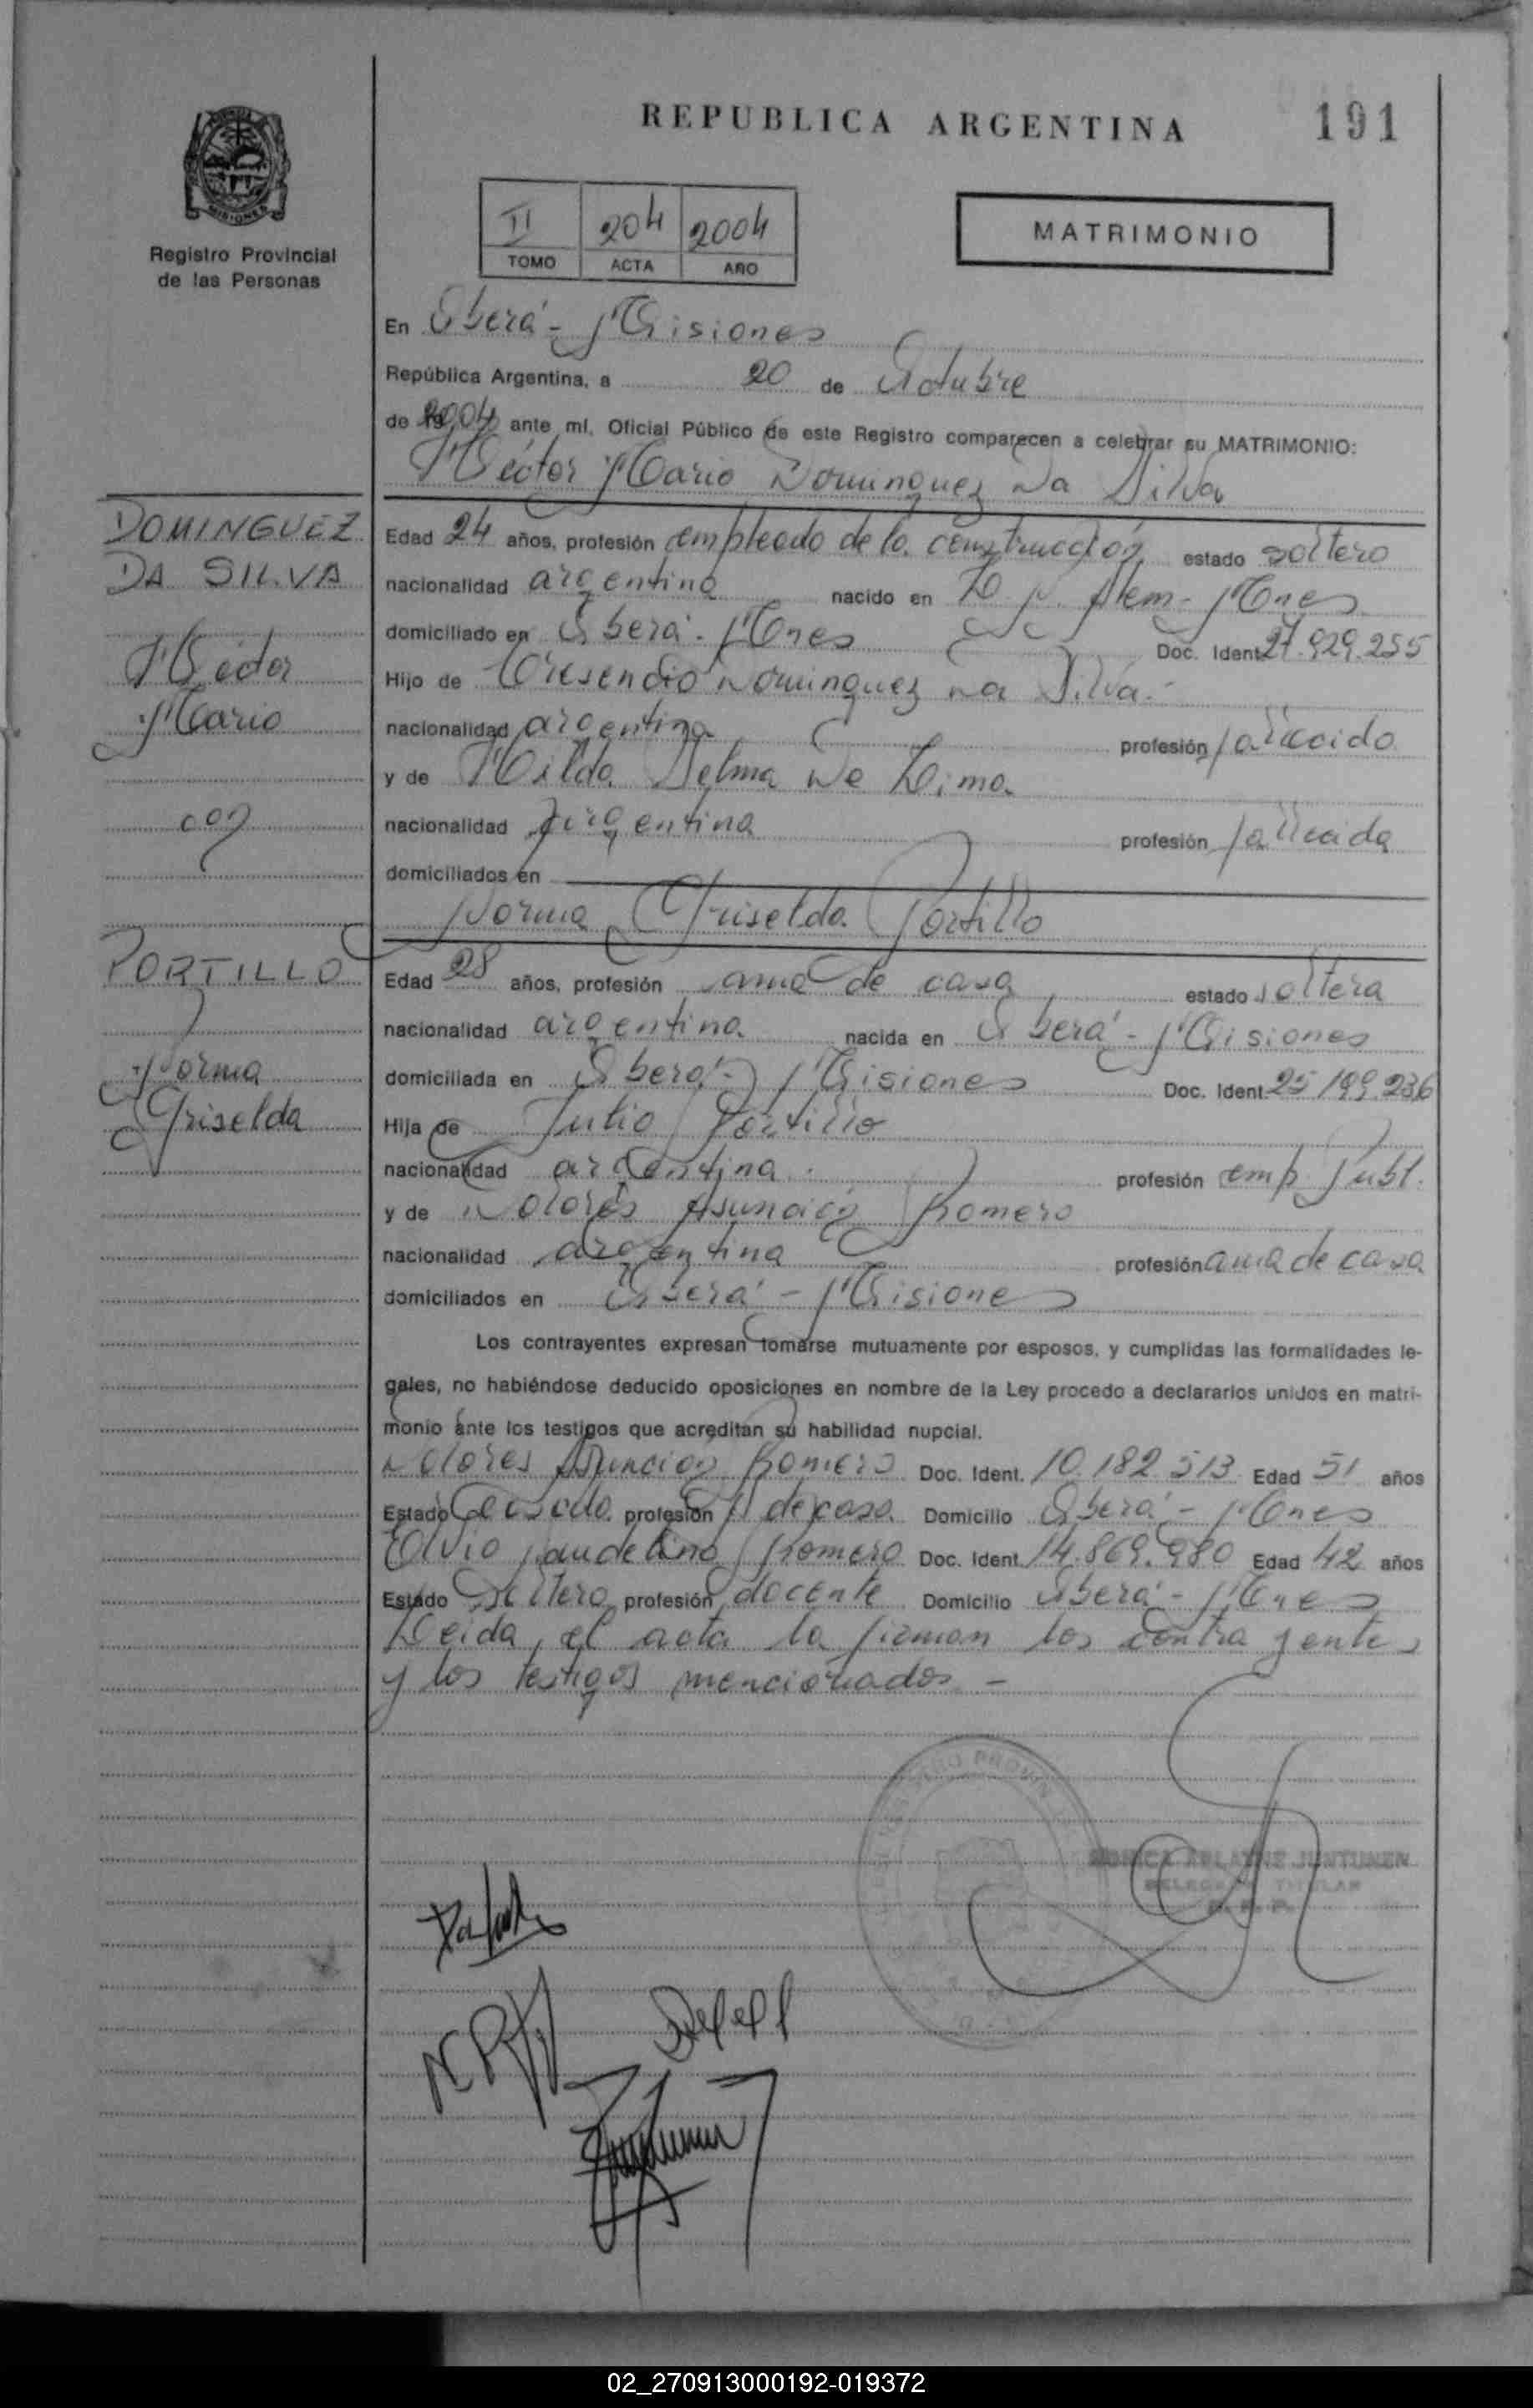 REPUBLICA ARGENTINA
191
MISIONES
Registro Provincial
de las Personas
II 204 2004
TOMO ACTA AÑO
MATRIMONIO
En Oberá - Misiones
República Argentina, a 20 de Octubre
de 2004 ante mí, Oficial Público de este Registro comparecen a celebrar su MATRIMONIO:
Héctor Mario Dominguez Da Silva
DOMINGUEZ
DA SILVA
Héctor
Mario
con
PORTILLO
Norma
Griselda
Edad 24 años, profesión empleado de la construcción estado soltero
nacionalidad argentina nacido en L. N. Alem - Mnes
domiciliado en Oberá - Mnes Doc. Ident. 27.929.255
Hijo de Cresencio Dominguez Da Silva.-
nacionalidad argentina profesión fallecido
y de Hilda Selma De Lima
nacionalidad argentina profesión fallecida
domiciliados en
Norma Griselda Portillo
Edad 28 años, profesión ama de casa estado soltera
nacionalidad argentina nacida en Oberá - Misiones
domiciliada en Oberá - Misiones Doc. Ident. 25.199.236
Hija de Julio Portillo
nacionalidad argentina profesión emp. Publ.
y de Dolores Asunción Romero
nacionalidad argentina profesión ama de casa
domiciliados en Oberá - Misiones
Los contrayentes expresan tomarse mutuamente por esposos, y cumplidas las formalidades le-
gales, no habiéndose deducido oposiciones en nombre de la Ley procedo a declararlos unidos en matri-
monio ante los testigos que acreditan su habilidad nupcial.
Dolores Asunción Romero Doc. Ident. 10.182.513 Edad 51 años
Estado Casada profesión A. de casa Domicilio Oberá - Mnes
Elvio Romero Doc. Ident. 14.869.980 Edad 42 años
Estado Soltero profesión docente Domicilio Oberá - Mnes
Leida, el acta la firman los contrayentes
y los testigos mencionados -
JUNTUNEN
TITULAR
02_270913000192-019372